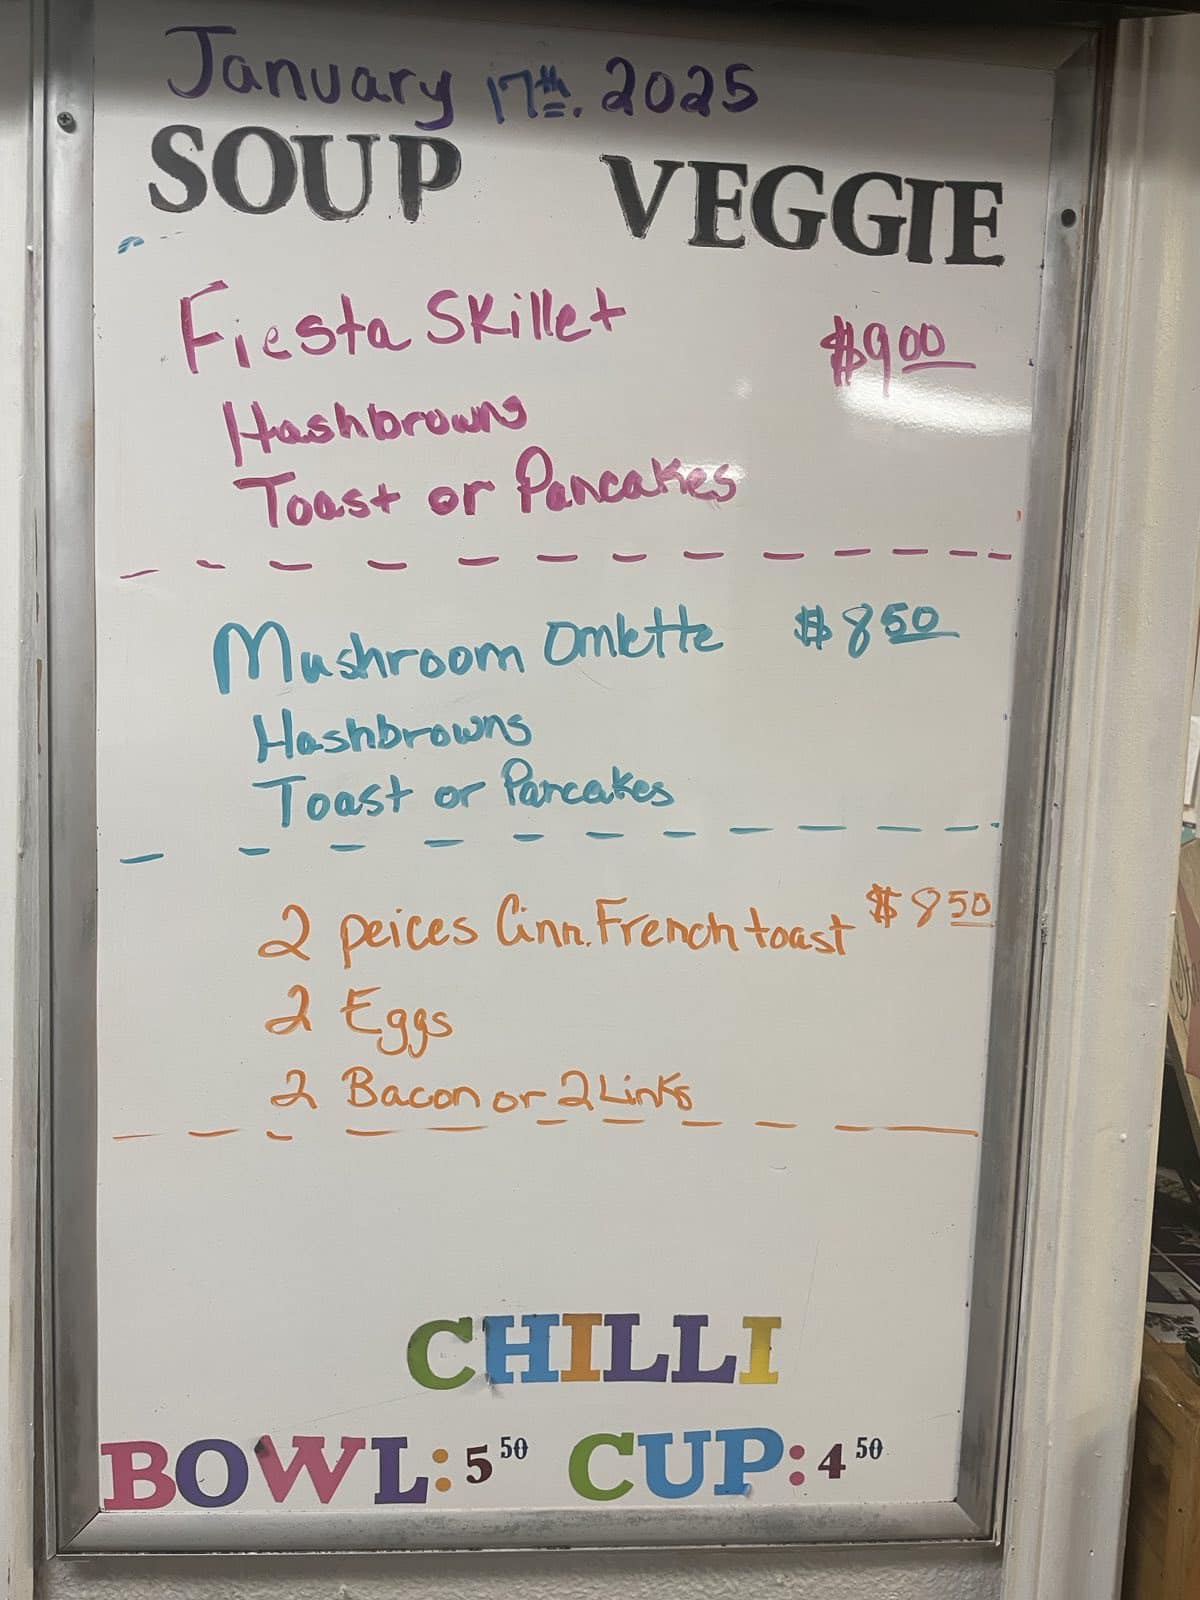 January 17th. 2025
SOUP VEGGIE
Fiesta Skillet $9 00
Hashbrowns
Toast or Pancakes
Mushroom Omlette $8 50
Hashbrowns
Toast or Pancakes
2 peices Cinn. French toast $8 50
2 Eggs
2 Bacon or 2 Links
CHILLI
BOWL: 5 50 CUP: 4 50